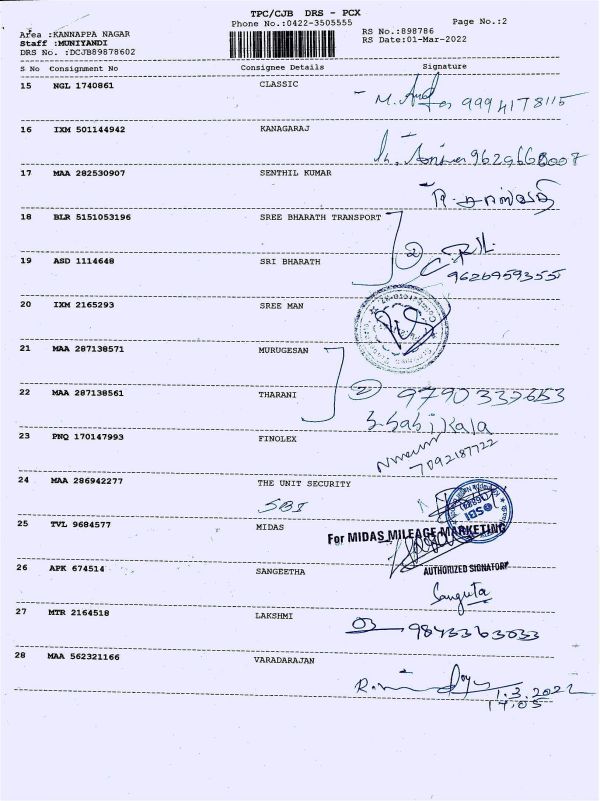 TPC/CJB DRS - PCX
Phone No.:0422-3505555
Page No.:2
Area :KANNAPPA NAGAR
Staff :MUNIYANDI
DRS No. :DCJB89878602
RS No.:898786
RS Date:01-Mar-2022
S No Consignment No Consignee Details Signature
15 NGL 1740861 CLASSIC
9994178115
16 IXM 501144942 KANAGARAJ
9629668007
17 MAA 282530907 SENTHIL KUMAR
18 BLR 5151053196 SREE BHARATH TRANSPORT
2
19 ASD 1114648 SRI BHARATH
9626959355
20 IXM 2165293 SREE MAN
21 MAA 287138571 MURUGESAN
2 9790337653
22 MAA 287138561 THARANI
S. Sasikala
23 PNQ 170147993 FINOLEX
7092187722
24 MAA 286942277 THE UNIT SECURITY
SBI
SBI
25 TVL 9684577 MIDAS
For MIDAS MILEAGE MARKETING
AUTHORIZED SIGNATORY
26 APK 674514 SANGEETHA
Sangeeta
27 MTR 2164518 LAKSHMI
03 9843363033
28 MAA 562321166 VARADARAJAN
1.3.2022
17.05